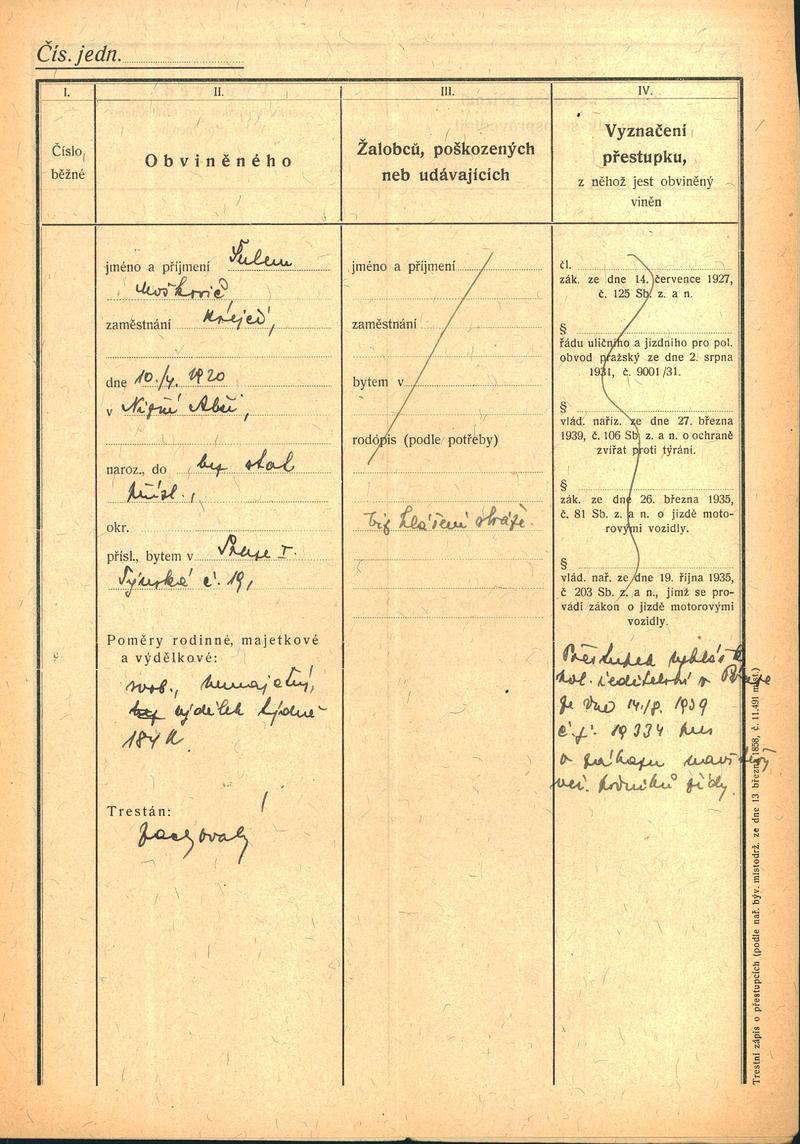 Čís. jedn.
I.
Číslo
běžné
II.
Obviněného
III.
Žalobců, poškozených
neb udávajících
IV.
Vyznačení
přestupku,
z něhož jest obviněný
viněn
jméno a příjmení Šulem
Moškovič,
zaměstnání krejčí,
dne 10./4. 1920
v Nižní Abši,
naroz., do bez stál
přísl.,
okr.
přísl., bytem v Praze I.
Týnská č. 19,
Poměry rodinné, majetkové
a výdělkové:
svob., nemajetný,
bez výdělek týdně
184 K
Trestán:
zachovalý
jméno a příjmení
zaměstnání
bytem v
rodopis (podle potřeby)
viz hlášení stráže.
čl.
zák. ze dne 14. července 1927,
č. 125 Sb. z. a n.
§
řádu uličního a jízdního pro pol.
obvod pražský ze dne 2. srpna
1931, č. 9001/31.
§
vlád. naříz. ze dne 27. března
1939, č. 106 Sb. z. a n. o ochraně
zvířat proti týrání.
§
zák. ze dne 26. března 1935,
č. 81 Sb. z. a n. o jízdě moto-
rovými vozidly.
§
vlád. nař. ze dne 19. října 1935,
č 203 Sb. z. a n., jímž se pro-
vádí zákon o jízdě motorovými
vozidly.
Přestupek vyhlášk
pol. ředitelství v Praze
ze dne 14./8. 1939
č. j. 19334 pres
o zákazu návštěvy
veř. podniků židy.
Trestní zápis o přestupcích (podle nař. býv. místodrž. ze dne 13 března 1858, č. 11.491 míst.)